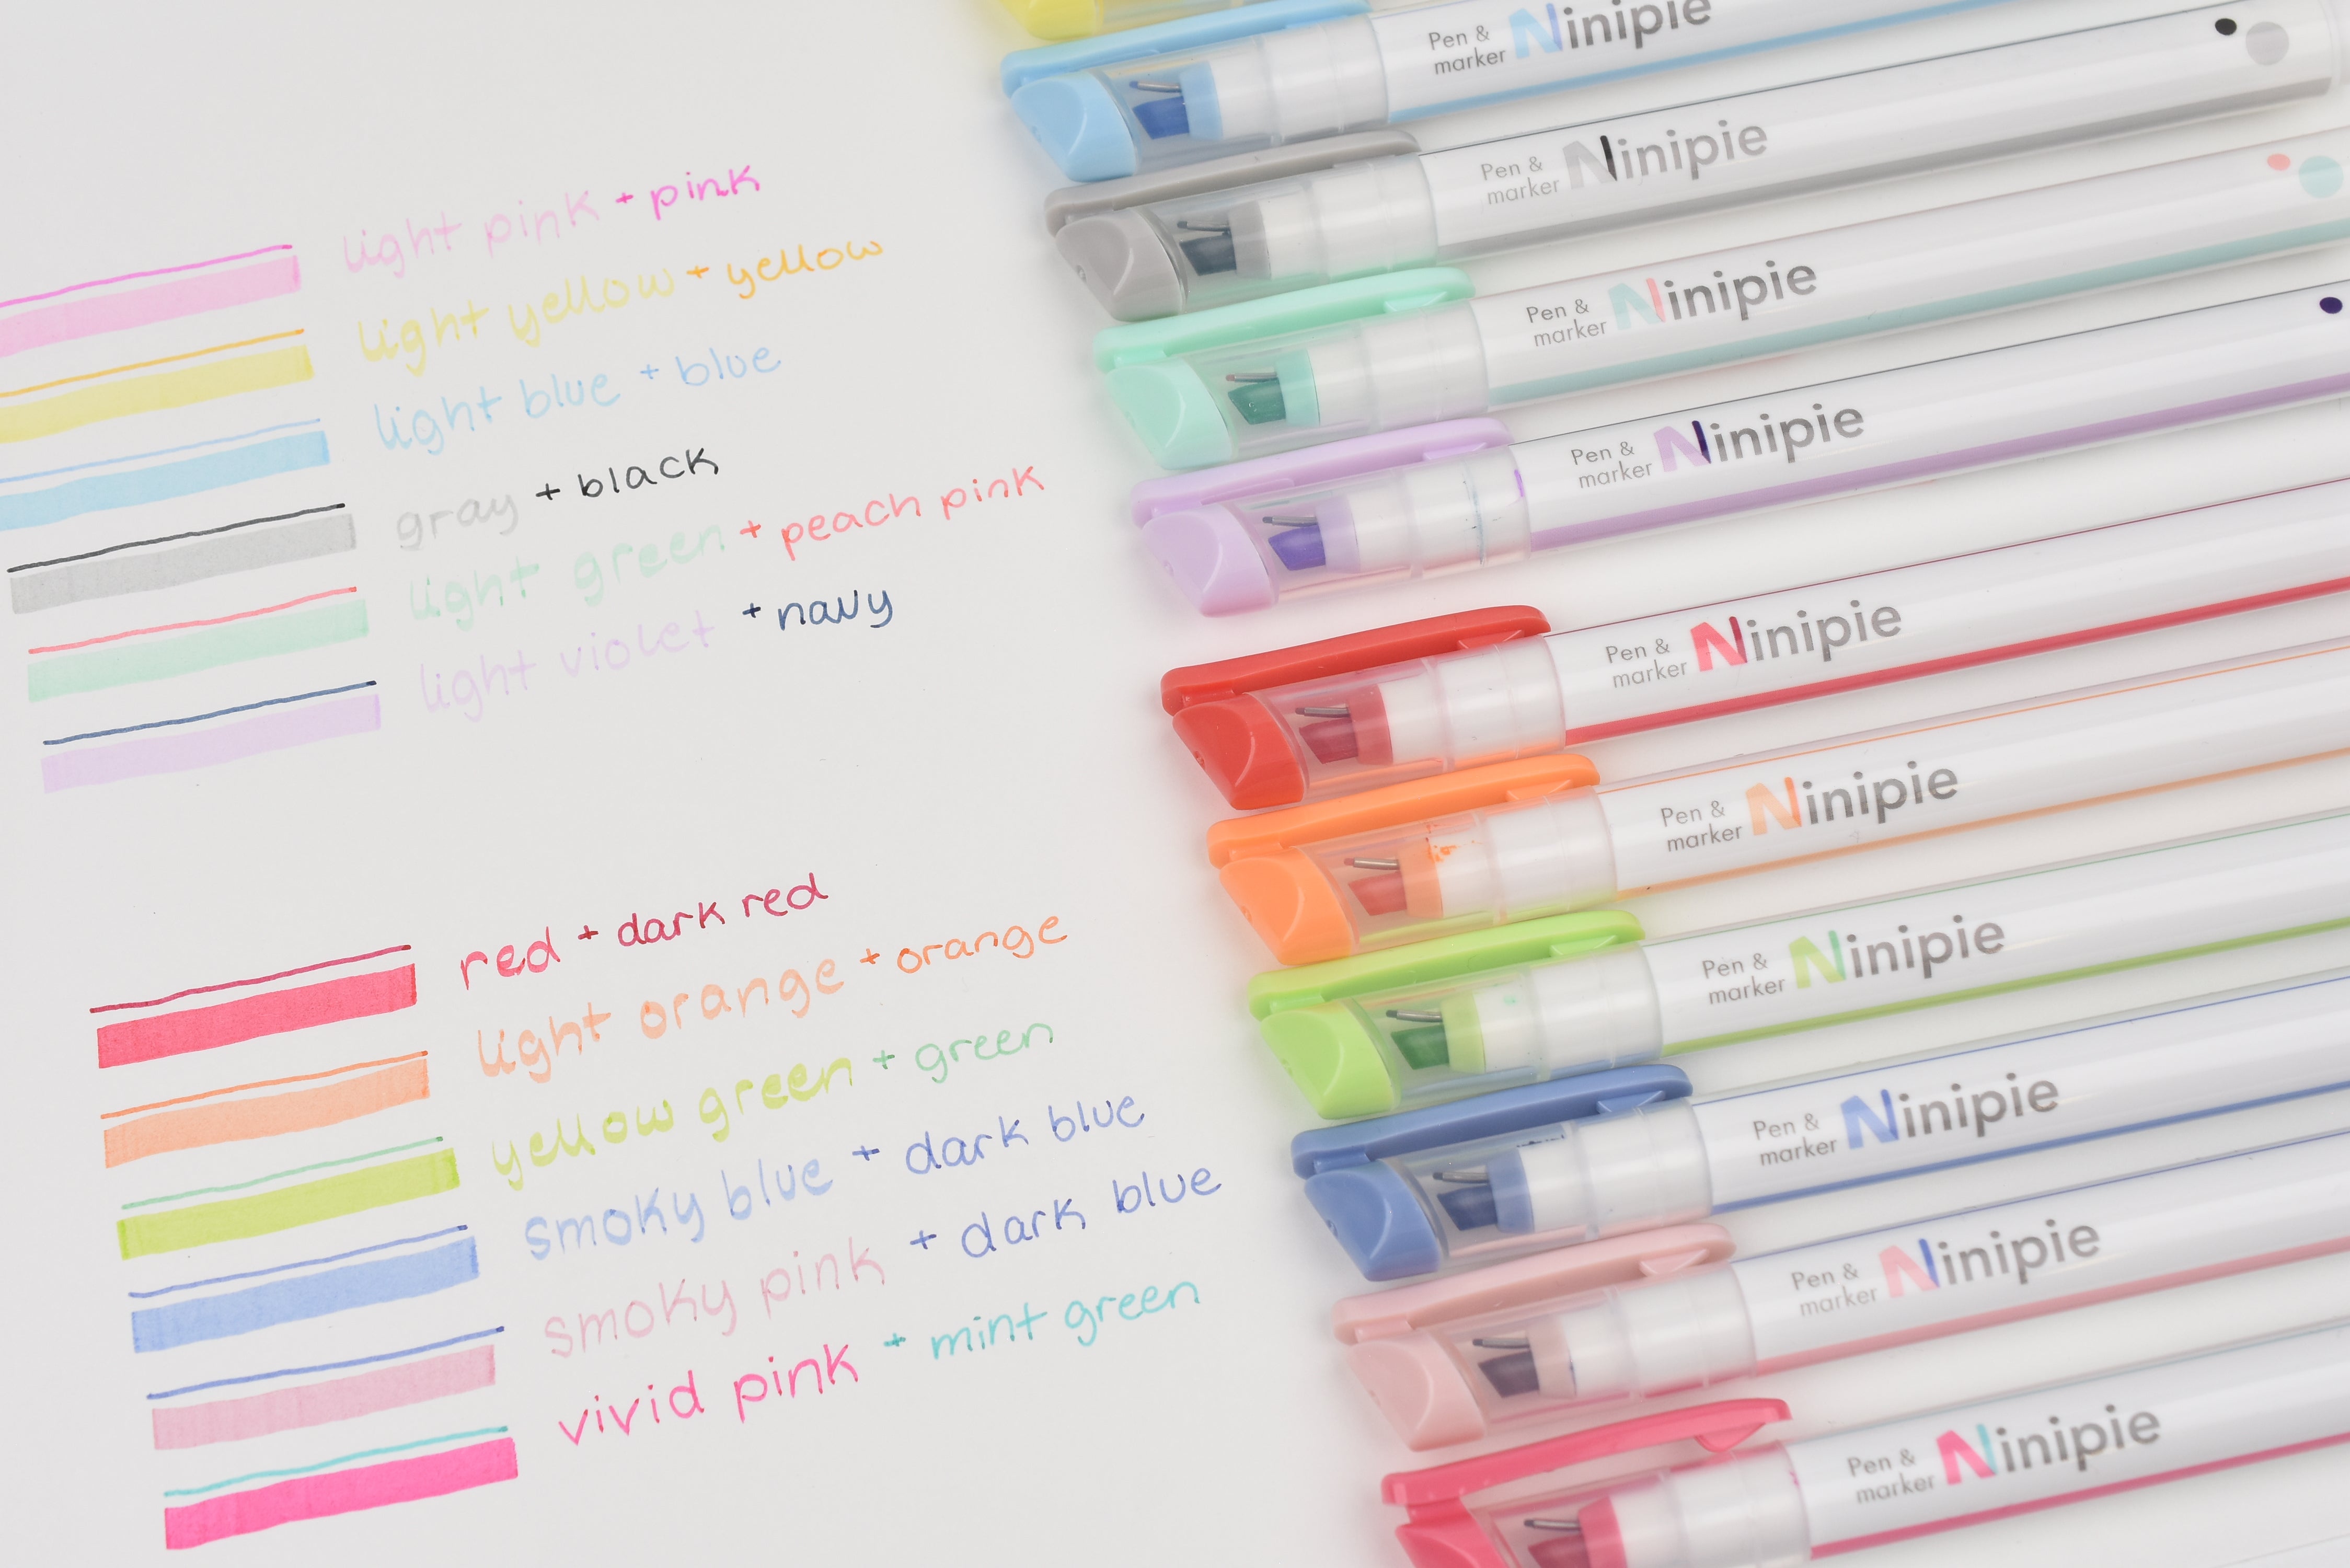 light pink + pink
light yellow + yellow
light blue + blue
gray + black
light green + peach pink
light violet + navy
red + dark red
light orange + orange
yellow green + green
smoky blue + dark blue
smoky pink + dark blue
vivid pink + mint green
Pen & marker Ninipie
Pen & marker Ninipie
Pen & marker Ninipie
Pen & marker Ninipie
Pen & marker Ninipie
Pen & marker Ninipie
Pen & marker Ninipie
Pen & marker Ninipie
Pen & marker Ninipie
Pen & marker Ninipie